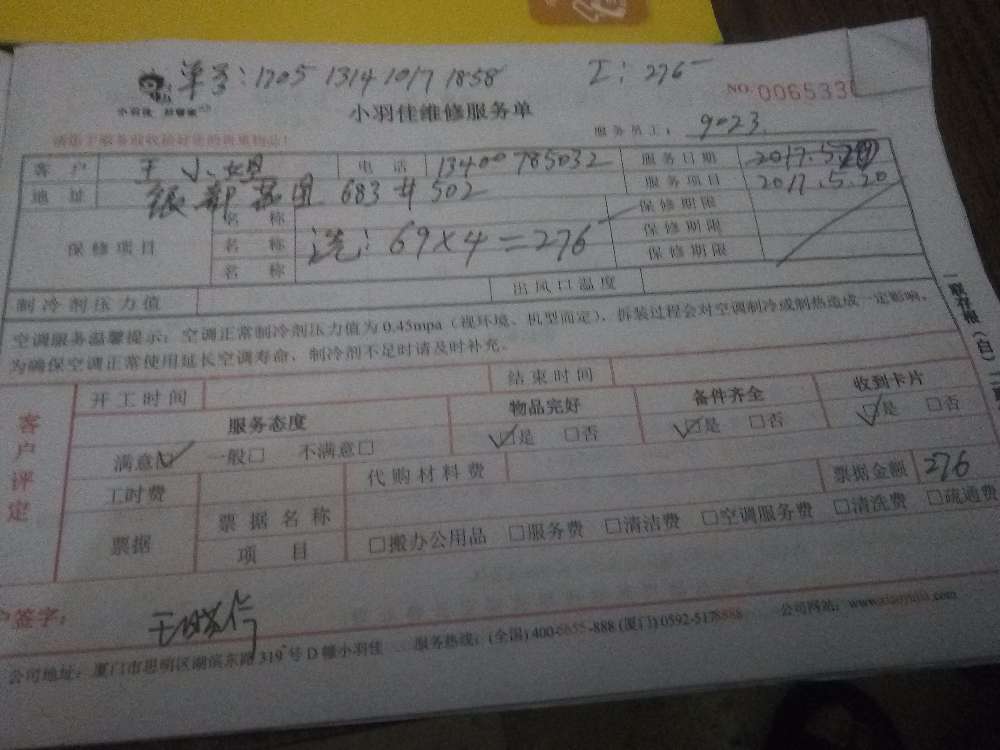 单号：1705 1314 1017 1858 工：276
小羽佳维修服务单 NO. 006533
服务员工： 9023
客 户 王小姐 电 话 13400785032 服务日期 2017.5.20
地 址 683 # 502 服务项目 2017.5.20
保修项目 名 称 洗：69×4=276 保修期限
名 称 保修期限
名 称 保修期限
制冷剂压力值 出风口温度
空调服务温馨提示：空调正常制冷剂压力值为0.45mpa（视环境、机型而定），拆装过程会对空调制冷或制热造成一定影响，
为确保空调正常使用延长空调寿命，制冷剂不足时请及时补充。
一联存根（白）
客户评定
开工时间 结束时间
服务态度 物品完好 备件齐全 收到卡片
满意☑ 一般□ 不满意□ ☑是 □否 ☑是 □否 ☑是 □否
工时费 代购材料费 票据金额 276
票据 票据名称
项 目 □搬办公用品 □服务费 □清洁费 □空调服务费 □清洗费 □疏通费
户签字：
公司地址：厦门市思明区湖滨东路319号D幢小羽佳 服务热线：(全国)400-6655-888 (厦门)0592-5178888 公司网站：www.xiaoyujia.com